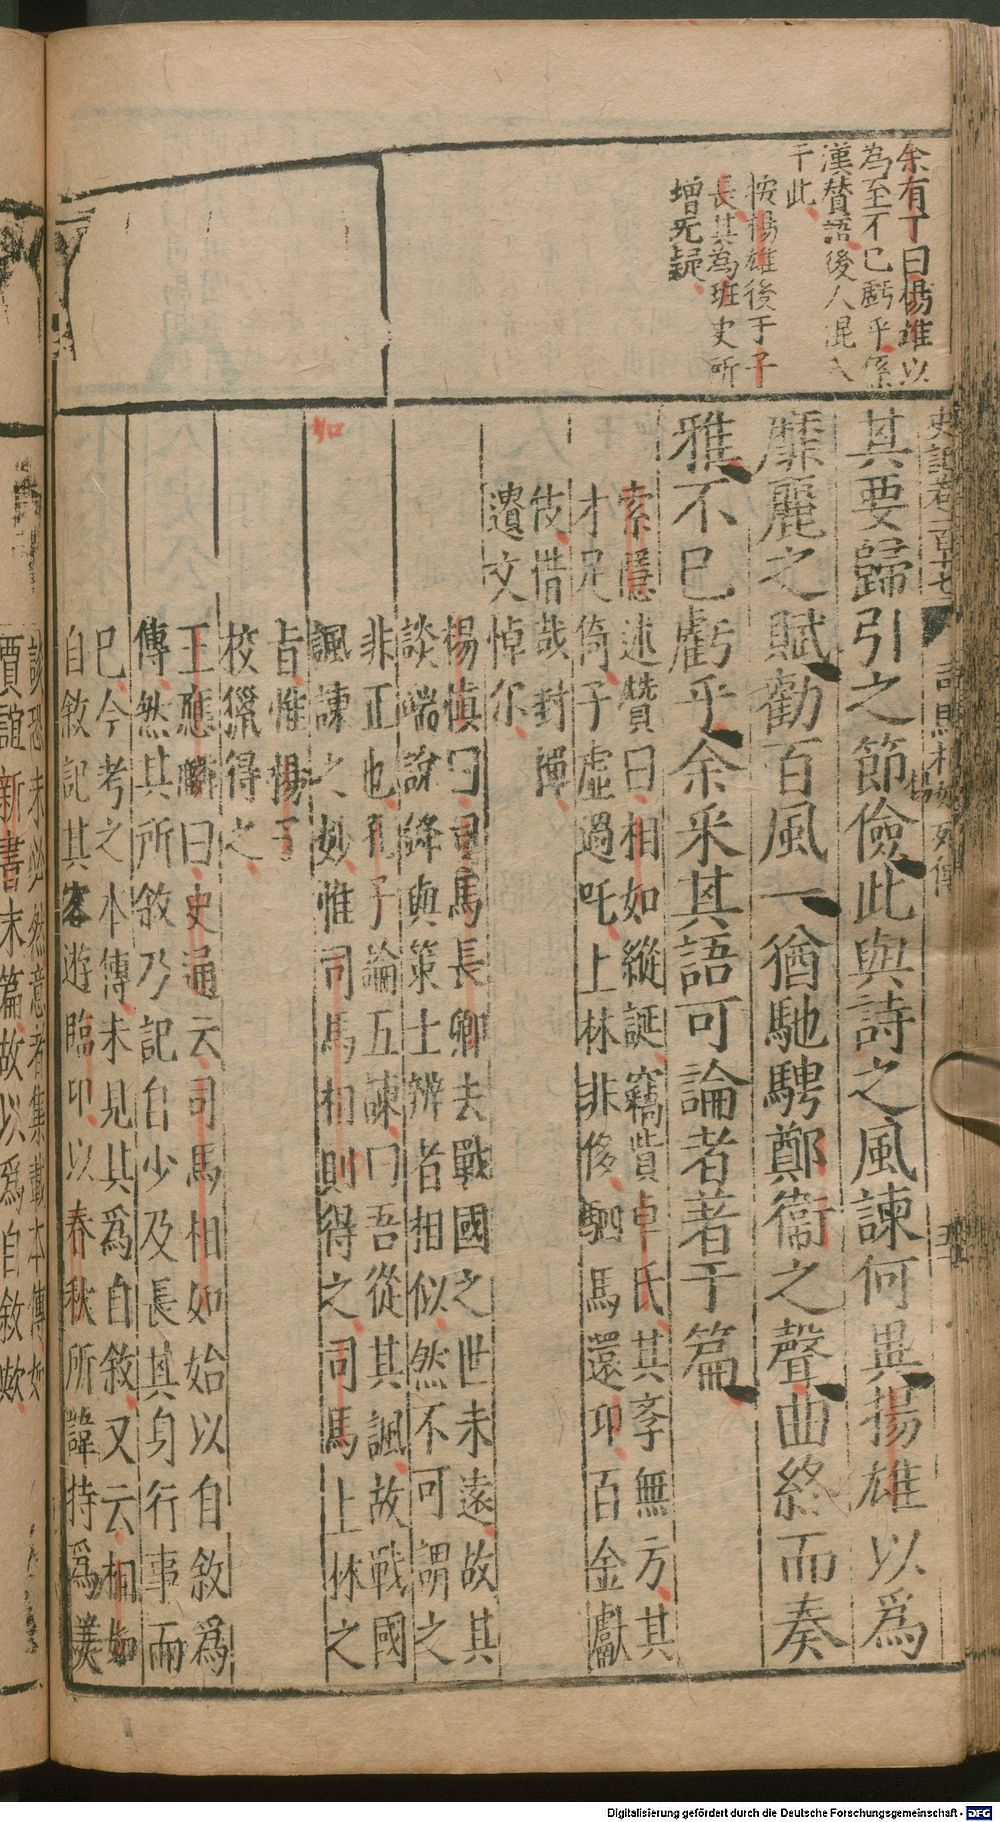 余有丁曰揚雄以
為至不已虧乎係
漢賛語後人混入
于此
按揚雄後于子
長其為班史所
增无疑
史記卷一百十七
司馬相如列傳
其要歸引之節儉此與詩之風諫何異揚雄以爲
靡麗之賦勸百風一猶馳騁鄭衞之聲曲終而奏
雅不已虧乎余采其語可論者著于篇
索隱述贊曰相如縱誕竊貲卓氏其學無方其
才足倚子虛過吒上林非侈駟馬還卭百金獻
伎惜哉封禪
遺文悼尔
楊愼曰司馬長卿去戰國之世未遠故其
談端說鋒與策士辨者相似然不可謂之
非正也孔子論五諫曰吾從其諷故戰國
諷諫之妙惟司馬相則得之司馬上林之
如
旨惟揚子
校獵得之
王應麟曰史通云司馬相如始以自敘爲
傳然其所敘乃記自少及長其身行事而
已今考之本傳未見其爲自敘又云相如
自敘記其客遊臨卭以春秋所諱持爲美
談恐未必然意者集載本傳如
賈誼新書末篇故以爲自敘歟
Digitalisierung gefördert durch die Deutsche Forschungsgemeinschaft - DFG